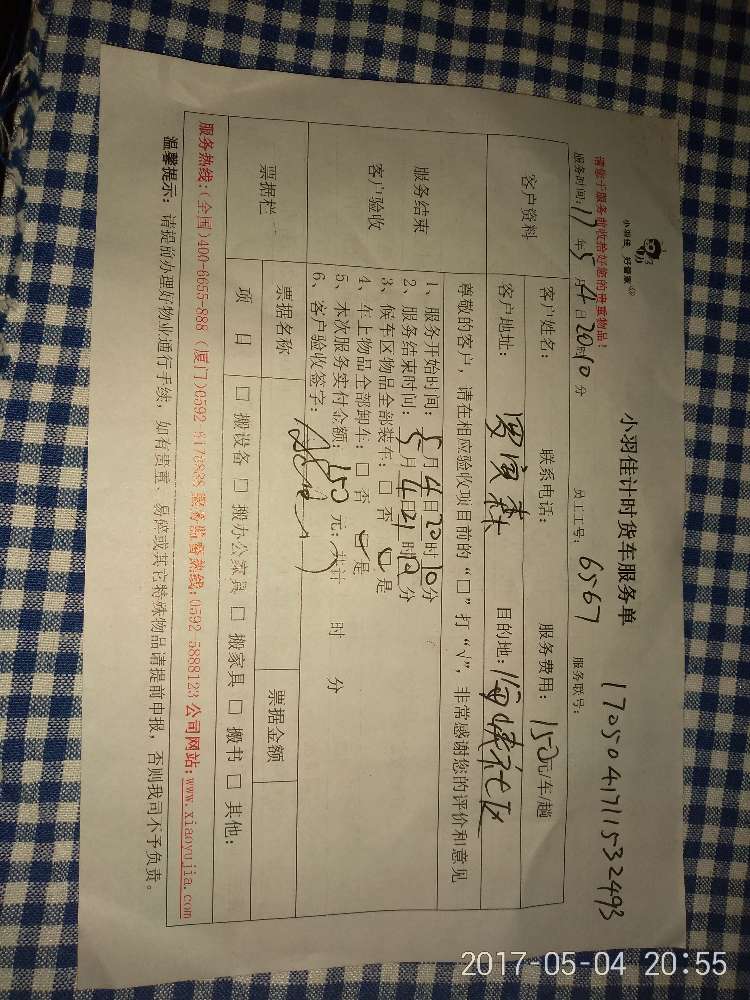 小羽佳 好管家
小羽佳计时货车服务单
170504171153 2493
请您于服务前收拾好您的贵重物品！
服务时间：17年5月4日20时10分 员工工号：6567 服务联号：
客户资料
客户姓名： 联系电话： 服务费用：150元/车/趟
客户地址： 目的地：海峡社区
服务结束
客户验收
尊敬的客户，请在相应验收项目前的“□”打“√”，非常感谢您的评价和意见
1、服务开始时间：5月4日20时10分
2、服务结束时间：5月4日21时 分
3、保车区物品全部装车：□ 否 □ 是
4、车上物品全部卸车：□ 否 □ 是
5、本次服务实付金额：150元；共计 时 分
6、客户验收签字：
票据栏
票据名称
票据金额
项 目
□ 搬设备 □ 搬办公家具 □ 搬家具 □ 搬书 □ 其他：
服务热线：(全国)400-6655-888 (厦门)0592 服务监督热线:0592 5888123 公司网站:www.xiaoyujia.com
温馨提示：请提前办理好物业通行手续，如有贵重、易碎或其它特殊物品请提前申报，否则我司不予负责。
2017-05-04 20:55